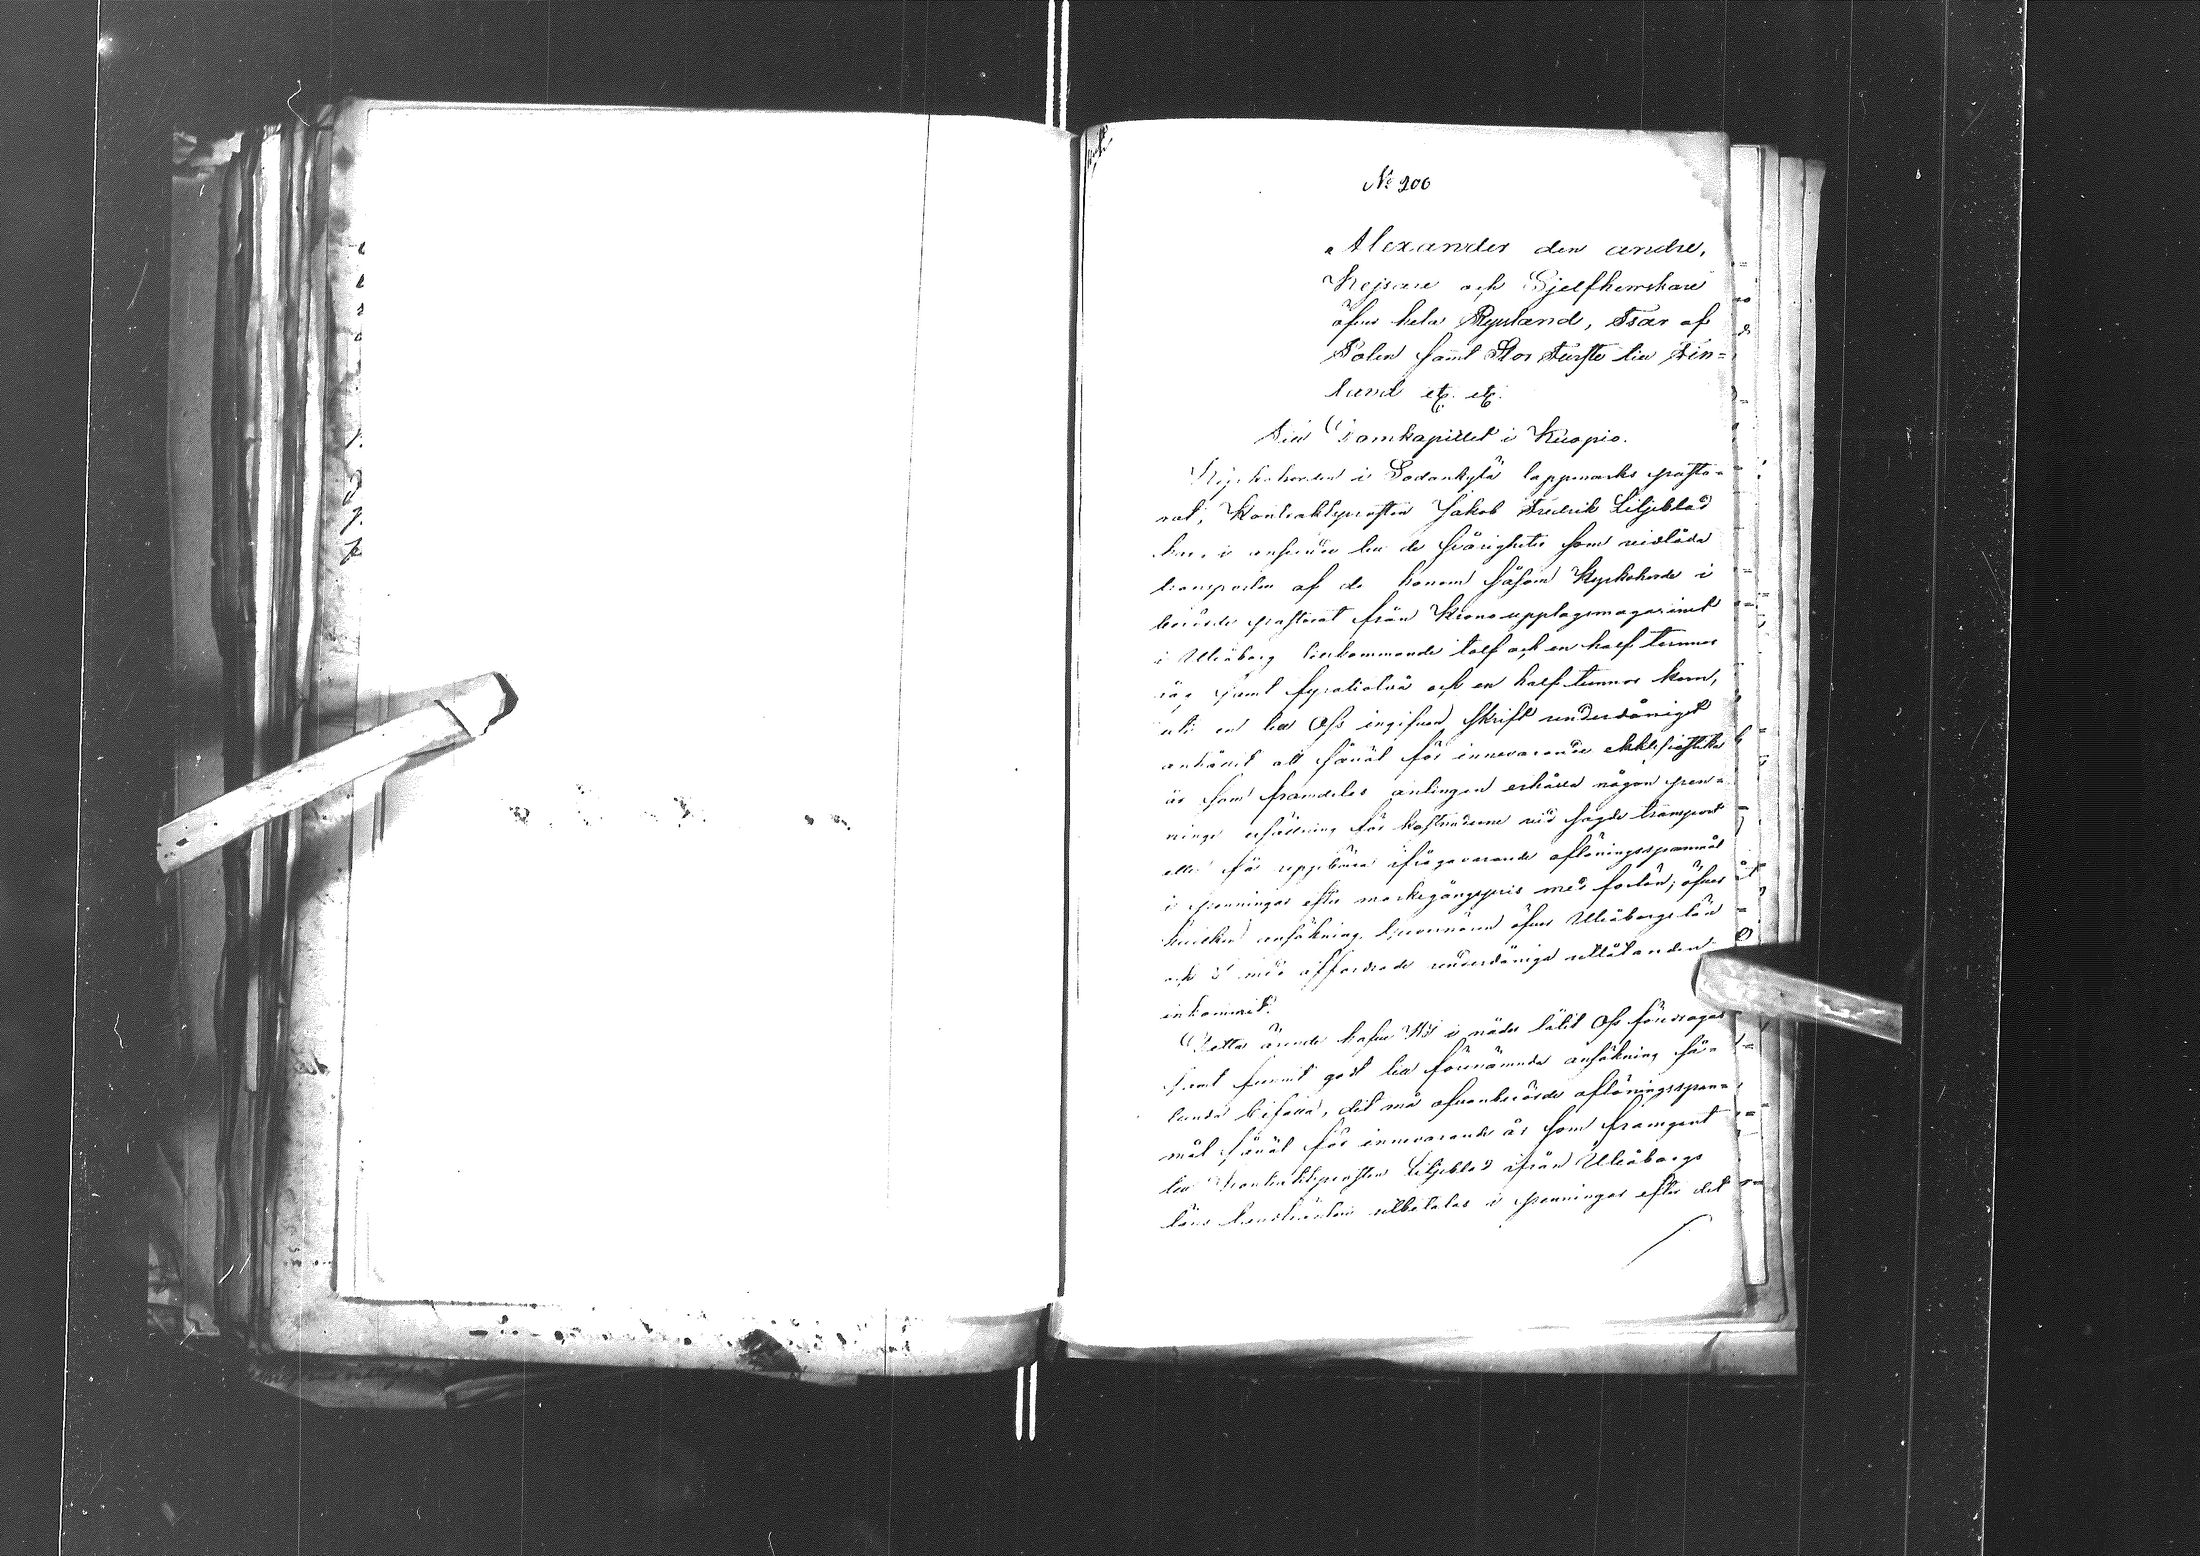 № 206
Alexander den andre,
Kejsare och Sjelfherrskare
öfver hela Ryssland, Tsar af
Polen samt Stor Furste till Fin=
land etc. etc.
Till Domkapitlet i Kuopio.
Kyrkoherden i Sodankylä lappmarks pasto=
rat, Kontraktsprosten Jakob Fredrik Liljeblad
har, i anseende till de svårigheter som vidlåda
transporten af de honom såsom Kyrkoherde i
berörde pastorat från Krono upplagsmagasinet
i Uleåborg tillkommande tolf och en half tunnor
råg samt fyratiotvå och en half tunnor korn,
uti en till Oss ingifven skrift underdånigst
anhållit att såväl för innevarande ekklesiastika
år som framdeles antingen erhålla någon pen=
ninge ersättning för kostnaderne vid sagde transport
eller få uppbära ifrågavarande aflöningsspannmål
i penningar efter markegångspris med forlön; öfver
hvilken ansökning Guvernören öfver Uleåborgs län
och I med affordrade underdåniga utlåtanden
inkommit.
Detta ärende hafve Vi i nåder låtit Oss föredragas
samt funnit godt till förenämnda ansökning så=
lunda bifalla, att må ofvanberörde aflöningsspan=
mål såväl för innevarande år som framgent
till Kontraktsprosten Liljeblad ifrån Uleåborgs
läns landtränteri utbetalas i penningar efter det